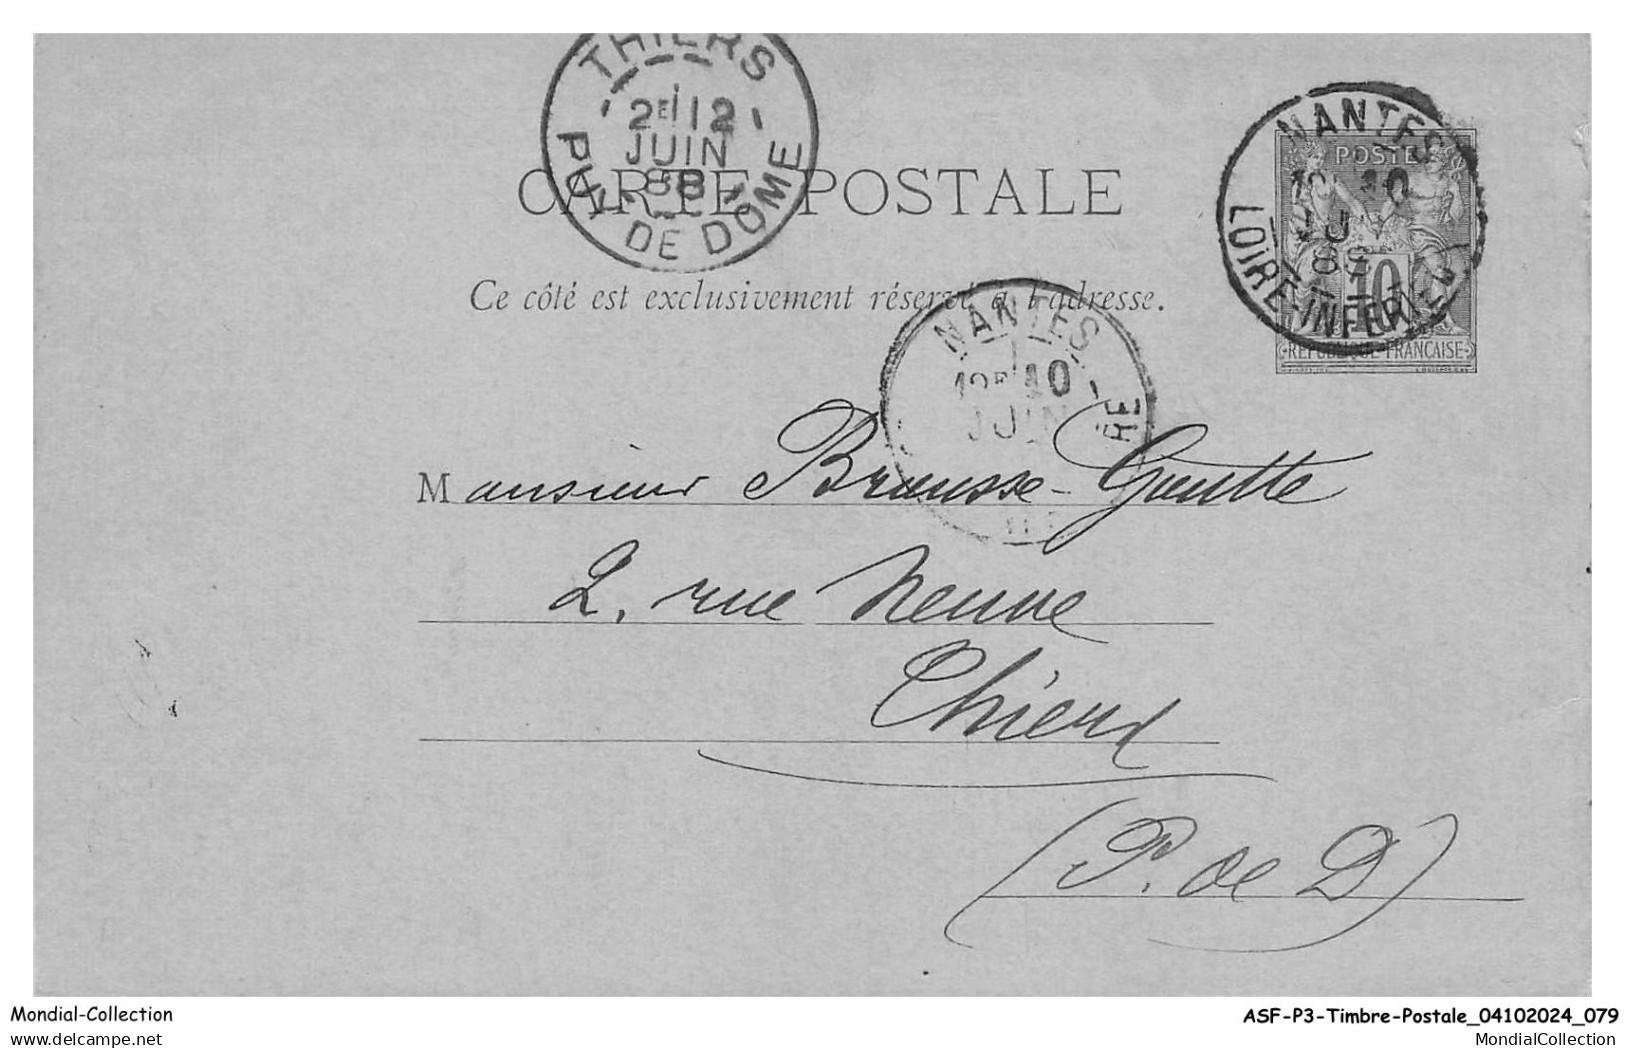 THIERS
2E 12
JUIN
88
PUY DE DOME
NANTES
10
JUI
88
LOIRE-INFERIEU
POSTES
10
REPUBLIQUE FRANÇAISE
CARTE POSTALE
Ce côté est exclusivement réservé à l'adresse.
NANTES
12E 10
JUIN
RE
Monsieur Brousse-Goutte
2, rue Neuve
Thiers
(P. de D)
Mondial-Collection
ASF-P3-Timbre-Postale_04102024_079
delcampe.net
MondialCollection